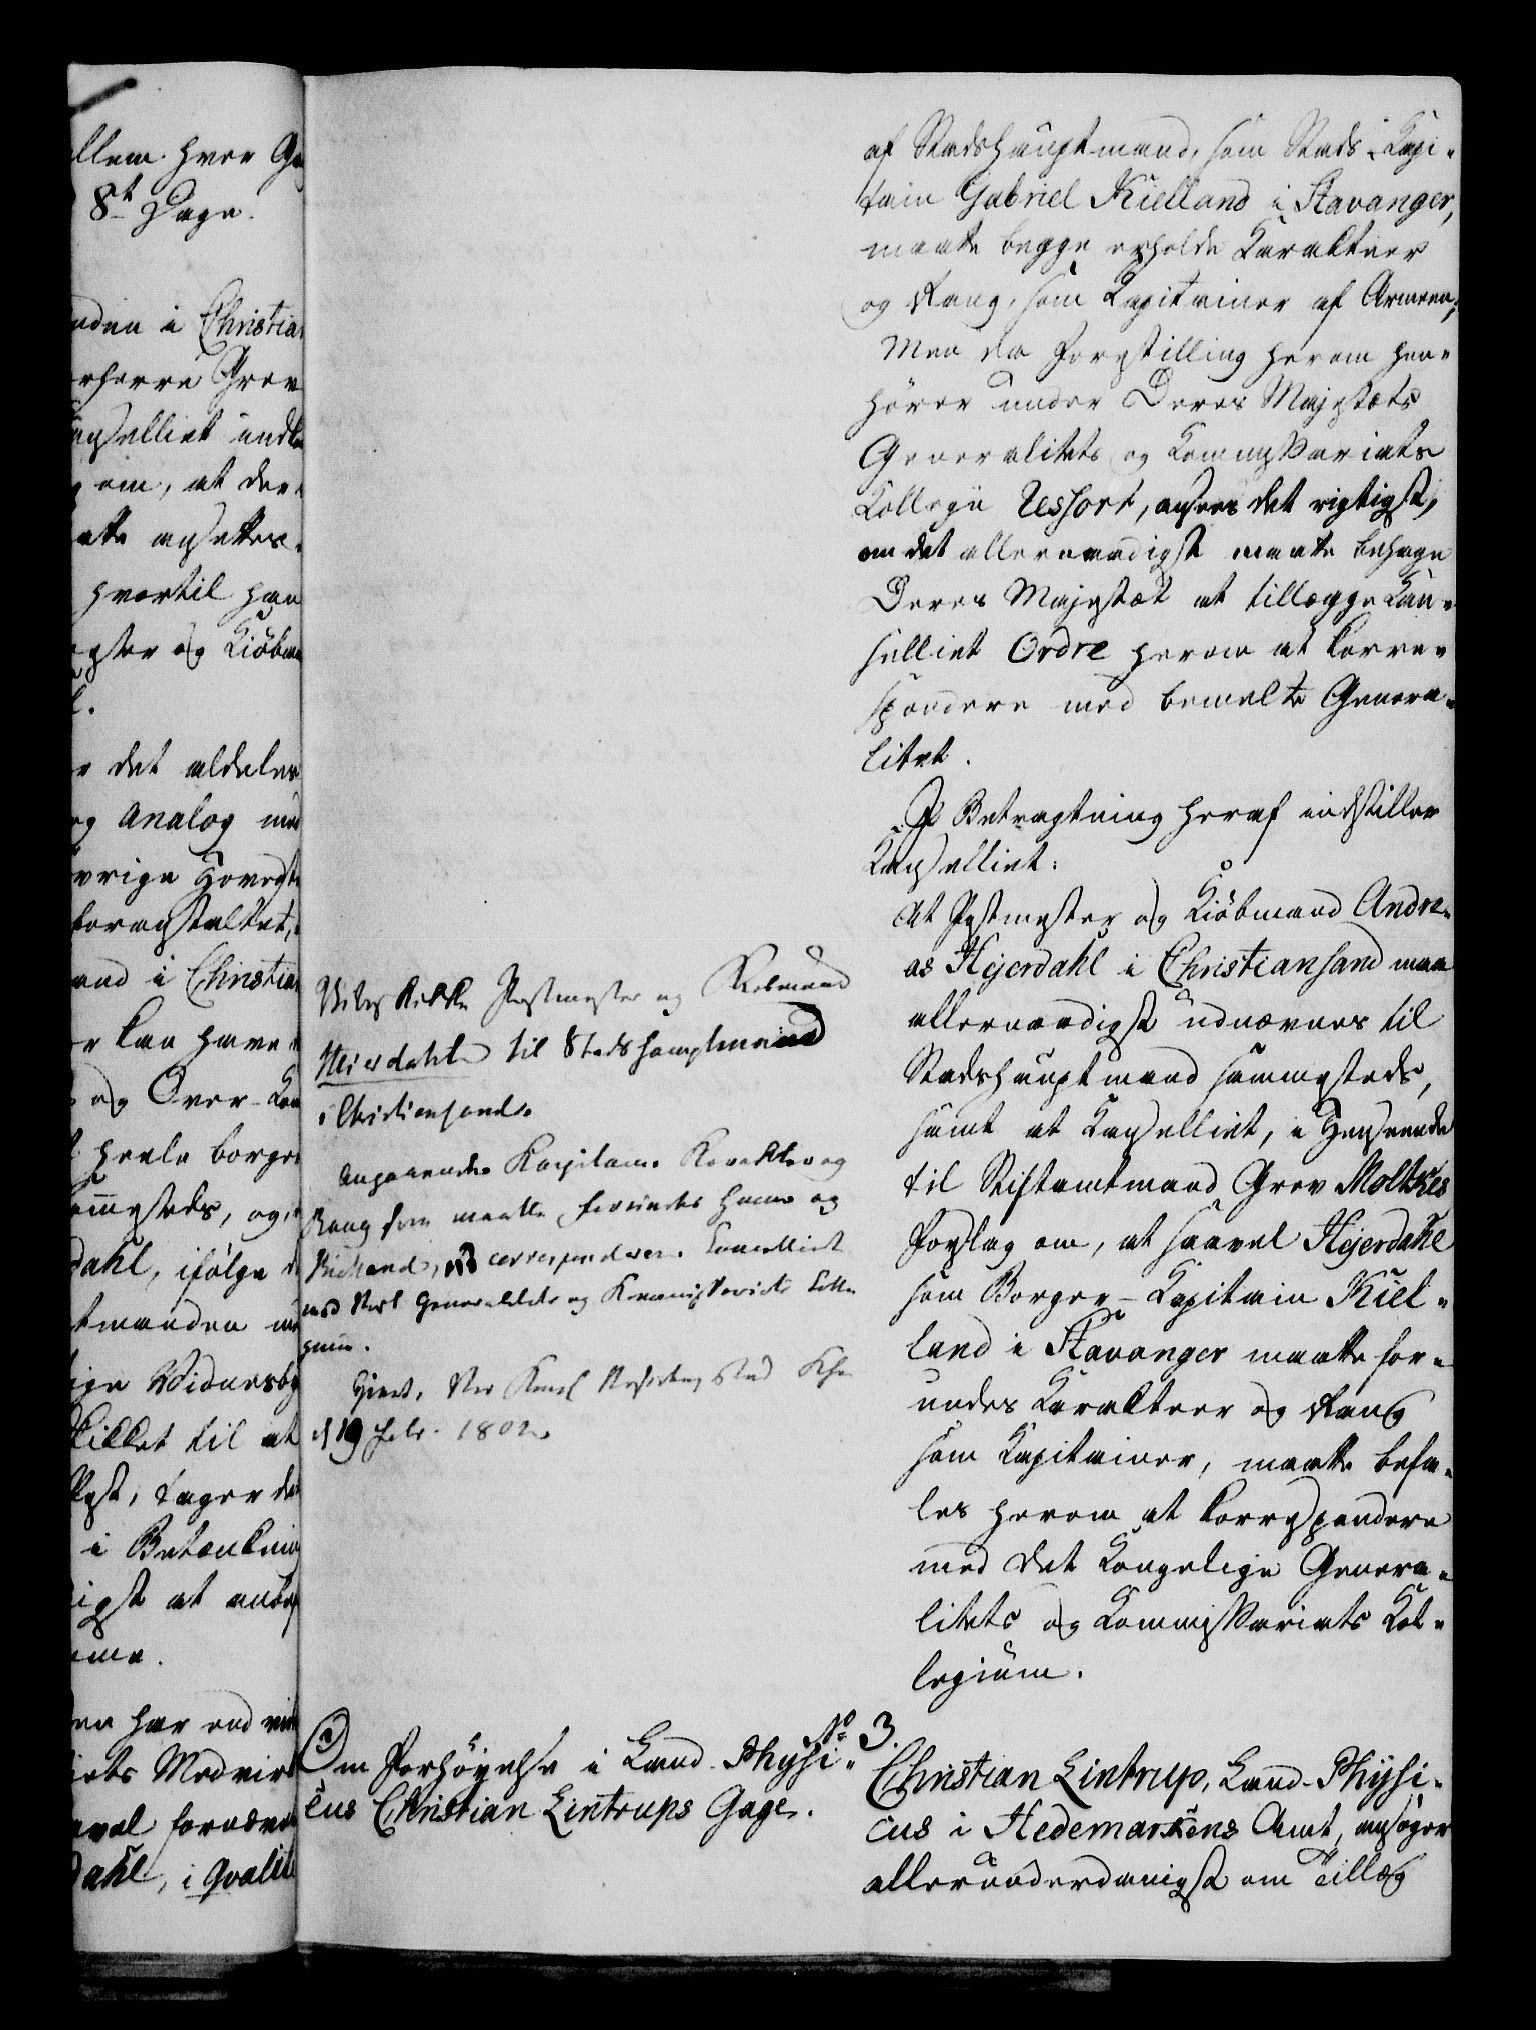 llem hver
8t Dage.
nden i Christia
rherre Grev
anselliet
om, at der
atte ansettes
hvortil han
og Kiöbm
det aldeles
og analog med
vrige
foranstaltet,
and i Christia
r kan have
og Over-
heele borger
ammesteds, og
dahl, ifölge
tmanden
Vidnesby
skikket til at
Post, tager
i Betænkning
igst at
mme.
en har
Medvir
vel
dahl, i Qvalite
af Stadshauptmand, som Stads-Kapi-
tain Gabriel Kielland i Stavanger,
maatte begge erholde Karakteer
og Rang, som Kapitainer af Armeen;
Men da Forestilling herom hen-
hörer under Deres Majestæts
Generalitets og Kommissariats
Kollegii Ressort, ansees det rigtigst,
om det allernaadigst maatte behage
Deres Majestæt at tillægge Kan-
selliet Ordre herom at korre-
spondere med bemelte Genera-
litet.
I Betragtning heraf indstiller
Kanselliet:
At Postmester og Kiöbmand Andre-
as Heyerdahl i Christiansand maa
allernaadigst udnævnes til
Stadshauptmand sammesteds,
samt at Kanselliet, i Henseende
til Stiftamtmand Grev Moltkes
Forslag om, at saavel Heyerdahl
som Borger-Kapitain Kiel-
land i Stavanger maatte for-
undes Karakteer og Rang
som Kapitainer, maatte befa-
les herom at korrespondere
med det Kongelige Genera-
litets og Kommissariats Kol-
legium.
Vi beskikke Postmester og Kiöbmand
Heierdahl til Stadshauptmand
i Christiansand.
Angaaende Kapitains Karakter og
Rang som maatte forundes ham og
Kielland, corresponderer Cancelliet
med Vort Generalitets og Kommissariats Colle
gium.
Givet, Vor Kongl Residentz Stad Khn
d 19 Febr. 1802.
No 3.
Om Forhöyelse i Land-Physi-
cus Christian Lintrups Gage.
Christian Lintrup, Land-Physi-
cus i Hedemarkens Amt, ansöger
allerunderdanigst om Tillæg